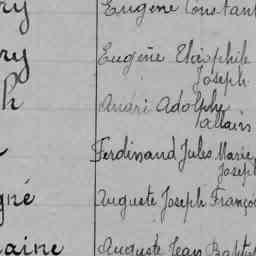 ry Eugène Constant
ry Eugène Théophile
Joseph
h André Adolphe
Ferdinand Jules Marie
Joseph
gné Auguste Joseph François
aine Auguste Jean Baptis